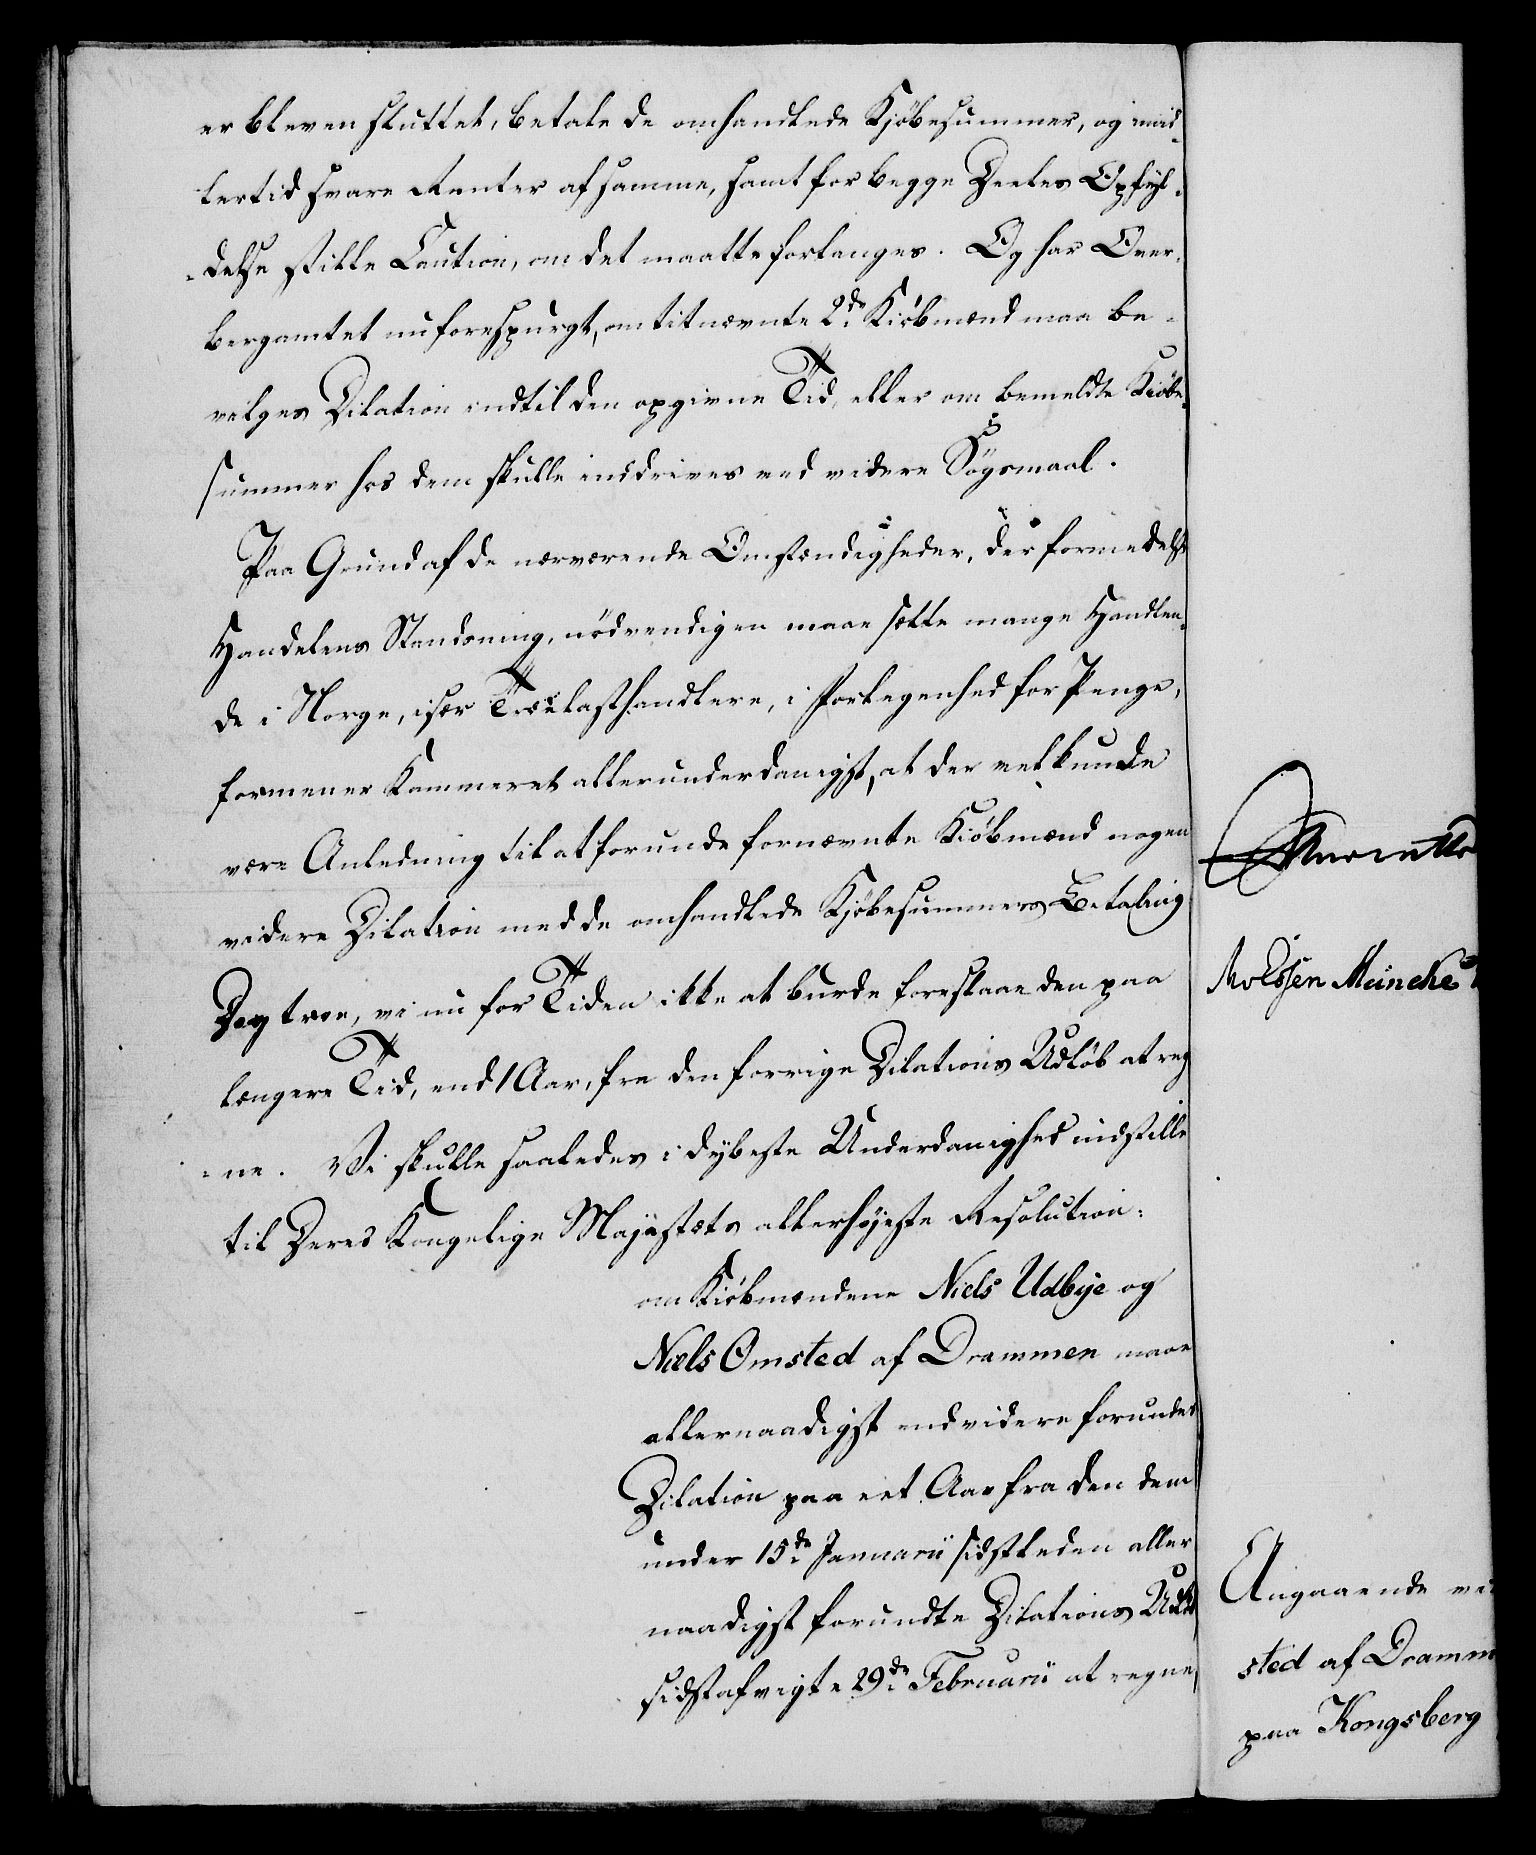 er bleven sluttet, betale de omhandlede Kjöbesummer, og imid-
lertid svare Renter af samme, samt for begge Deeles Opfyl-
-delse stille Caution, om det maatte forlanges. Og har Over-
bergamtet nu forespurgt, om titnævnte 2de Kiöbmænd maa be-
vilges Dilation indtil den opgivne Tid, eller om bemeldte Kiöbe-
summer hos dem skulle inddrives ved videre Sögsmaal.
Paa Grund af de nærværende Omstændigheder, der formedelst
Handelens Standsning, nödvendigen maae sætte mange Handlen-
de i Norge, især Trælasthandlere, i Forlegenhed for Penge,
formener Kammeret allerunderdanigst, at der vel kunde
være Anledning til at forunde fornævnte Kiöbmænd nogen
videre Dilation med de omhandlede Kjöbesummers Betaling
Dog troe, vi nu for Tiden ikke at burde foreslaae den paa
længere Tid, end 1 Aar, fra den forrige Dilations Udlöb at reg
-ne. Vi skulle saaledes i dybeste Underdanighed indstille
til Deres Kongelige Majestæts allerhöjeste Resolution:
om Kiöbmændene Niels Udbye og
Niels Omsted af Drammen maae
allernaadigst endvidere forundes
Dilation paa eet Aar fra den dem
under 15de Januarii sidstleden aller
naadigst forundte Dilations Udlöb
sidstafvigte 29de Februarii at regne,
Meincke
Angaaende
sted af Dramm
paa Kongsberg